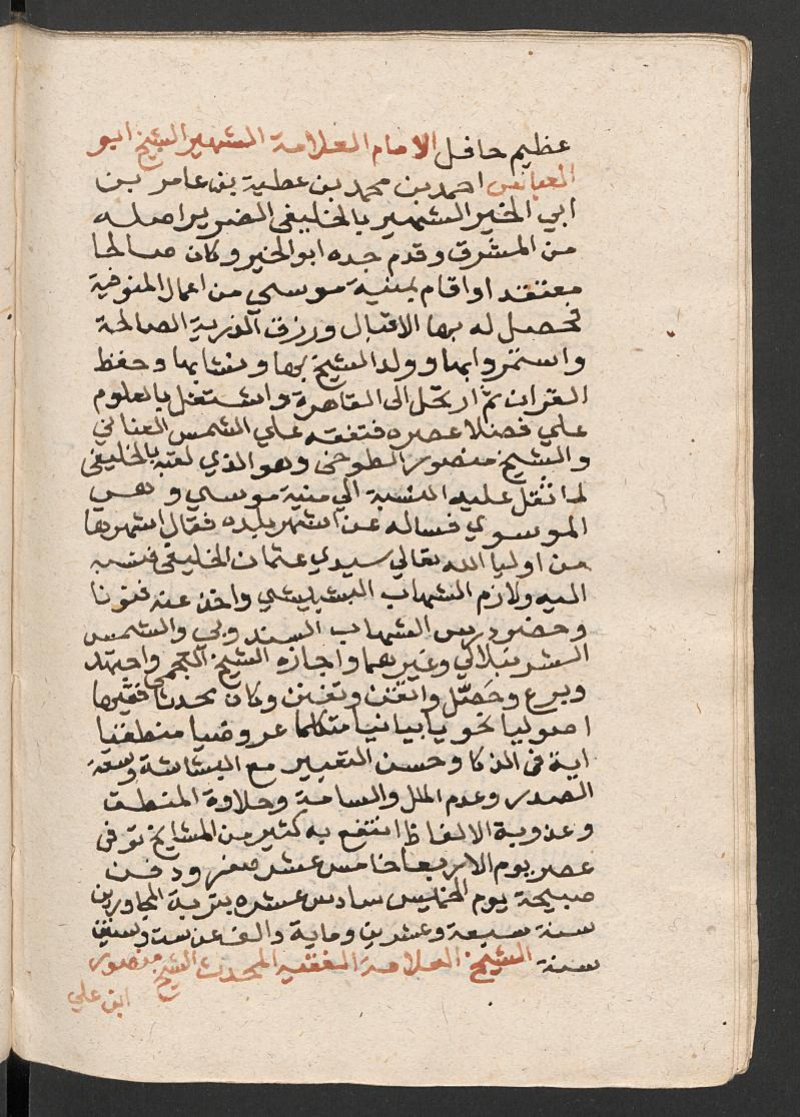 عظيم حافل الامام العلامة الشهير الشيخ ابو
العباس احمد بن محمد بن عطية بن عامر بن
ابي الخير الشهير بالخليفى الضرير اصله
من المشرق وقدم جده ابو الخير وكان صالحا
معتقدا واقام بمنية موسي من اعمال المنوفية
فحصل له بها الاقبال ورزق الذرية الصالحة
واستمروا بها وولد الشيخ بها ونشا بها وحفظ
القران ثم ارتحل الى القاهرة واشتغل بالعلوم
علي فضلا عصره فتفقه علي الشمس العناني
والشيخ منصور الطوخى وهو الذي لقبه بالخليفى
لما ثقل عليه النسبة الي منية موسي وهي
الموسوي فساله عن اشهر بلده فقال اشهرها
من اوليا الله تعالي سيدي عثمان الخليفى فنسبه
اليه ولازم الشهاب البشبيشي واخذ عنه فنونا
وحضر دروس الشهاب السندوبي والشمس
الشرنبلالي وغيرهما واجازه الشيخ العجمي واجتهد
وبرع وحصّل واتقن وتفنن وكان محدثا فقيها
اصوليا نحويا بيانيا متكلما عروضيا منطقيا
اية فى الذكا وحسن التعبير مع البشاشة وسعة
الصدر وعدم الملل والسامة وحلاوة المنطق
وعذوبة الالفاظ انتفع به كثير من المشايخ توفى
عصر يوم الاربعا خامس عشر صفر ودفن
صبيحة يوم الخميس سادس عشره بتربة المجاورين
سنة سبعة وعشرين وماية والف عن ست وستين
سنة الشيخ العلامة الفقيه المحدث الشيخ منصور
ابن علي